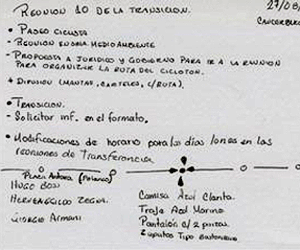 REUNION 10 DE LA TRANSICION.
27/08/
• PASEO CICLISTA
- REUNION EN SRIA MEDIO AMBIENTE
- PROPUESTA A JURIDICO Y GOBIERNO PARA IR A LA REUNION
PARA ORGANIZAR LA RUTA DEL CICLOTON.
+ DIFUSION (MANTAS, CARTELES, C/RUTA).
• TRANSICION.
- Solicitar inf. en el formato.
• Modificaciones de horario para los días lunes en las
reuniones de Transferencia.
PLAZA ANTARA (Polanco)
HUGO BOSS
HERMENEGILDO ZEGNA.
GIORGIO ARMANI
Camisa Azul Clarita.
Traje Azul Marino
Pantalón c/2 pinzas.
Zapatos Tipo